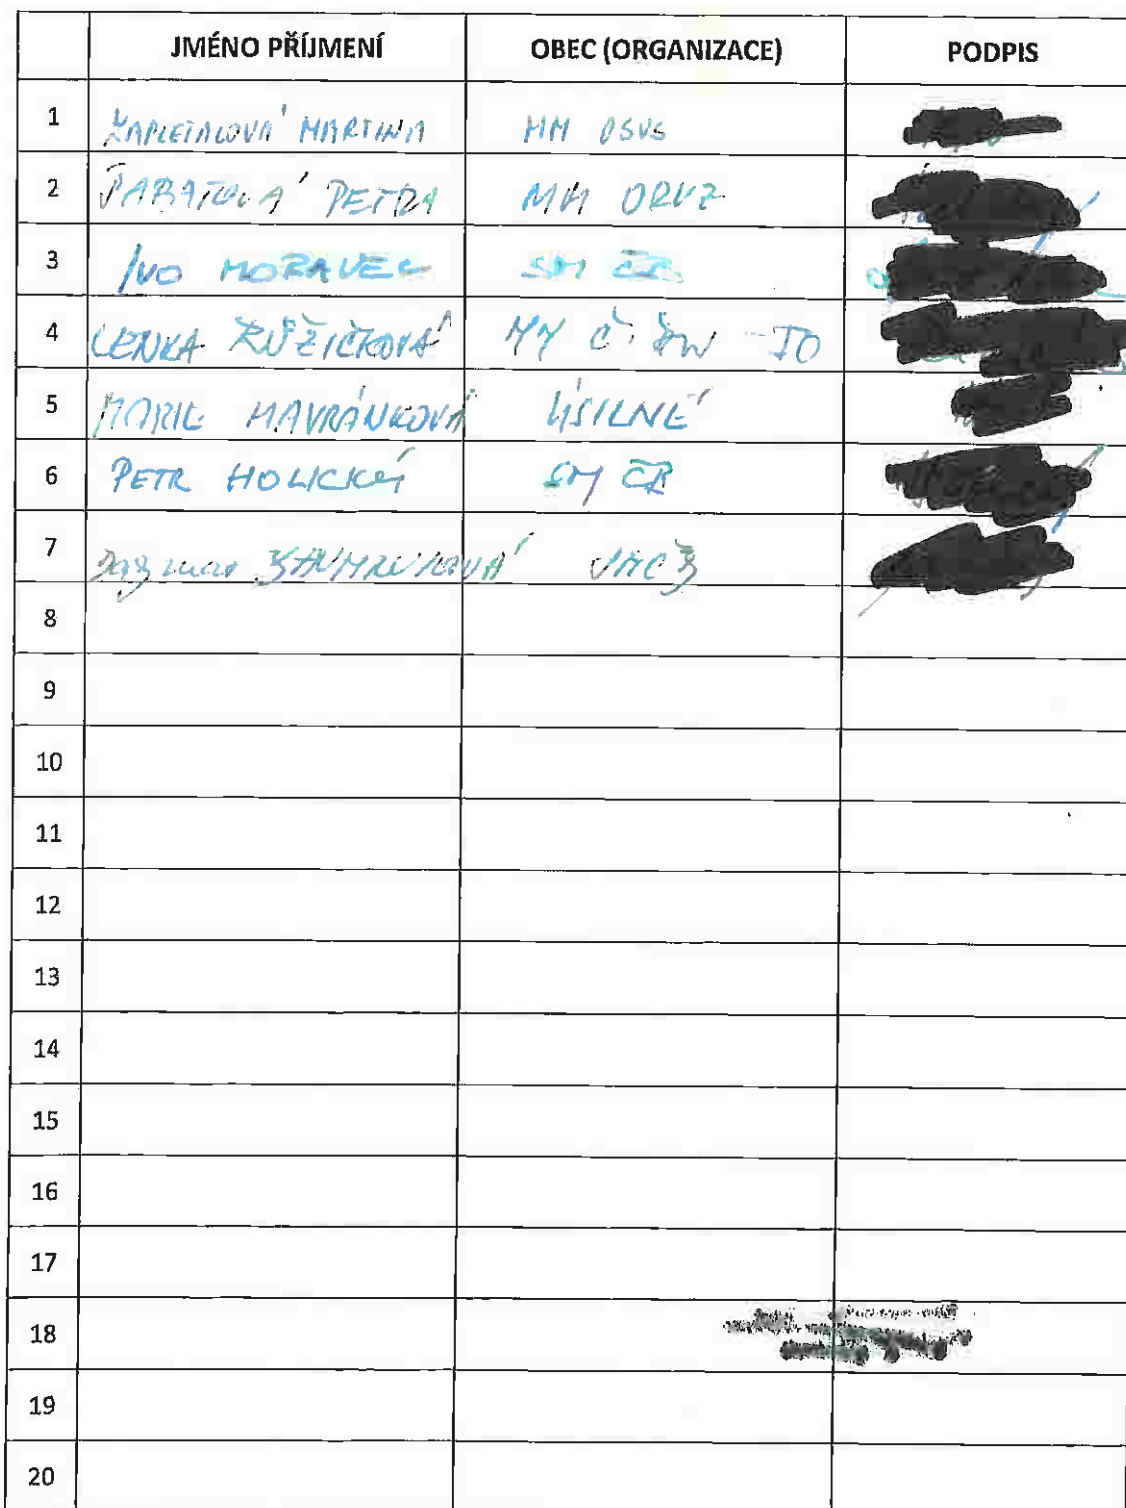 JMÉNO PŘÍJMENÍ OBEC (ORGANIZACE) PODPIS
1 ZAPLETALOVÁ MARTINA MM OSVS
2 PETRA MM ORVZ
3 IVO MORAVEC SM ČR
4 LENKA RŮŽIČKOVÁ MM Č.
5 MARIE HAVRÁNKOVÁ ÚSILNÉ
6 PETR HOLICKÝ SM ČR
7
8
9
10
11
12
13
14
15
16
17
18
19
20